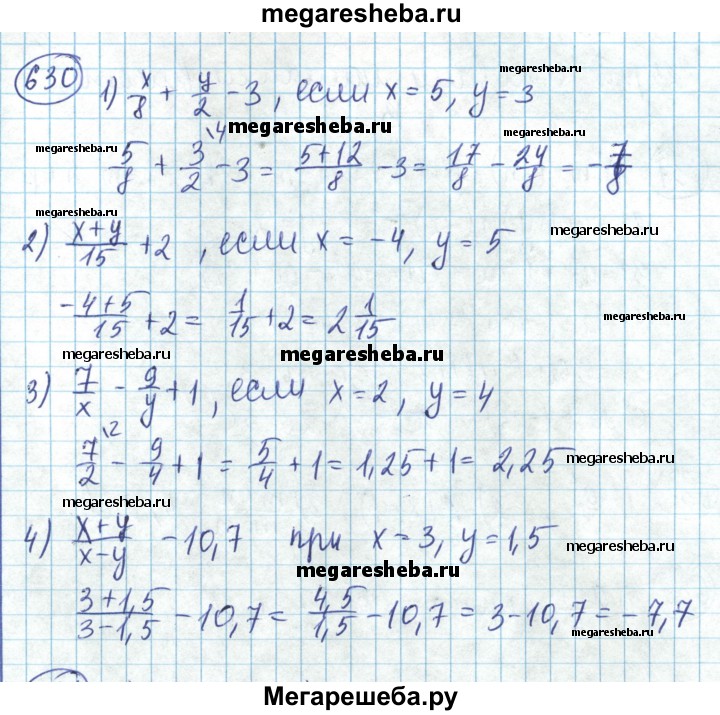 megaresheba.ru
630
1) x/8 + y/2 - 3, если x = 5, y = 3
megaresheba.ru
megaresheba.ru
megaresheba.ru
megaresheba.ru
5/8 + 3/2 \4 - 3 = (5+12)/8 - 3 = 17/8 - 24/8 = -7/8
megaresheba.ru
2) (x+y)/15 + 2, если x = -4, y = 5
megaresheba.ru
(-4+5)/15 + 2 = 1/15 + 2 = 2 1/15
megaresheba.ru
megaresheba.ru
3) 7/x - 9/y + 1, если x = 2, y = 4
7/2 \2 - 9/4 + 1 = 5/4 + 1 = 1,25 + 1 = 2,25
megaresheba.ru
megaresheba.ru
4) (x+y)/(x-y) - 10,7 при x = 3, y = 1,5
megaresheba.ru
megaresheba.ru
(3+1,5)/(3-1,5) - 10,7 = 4,5/1,5 - 10,7 = 3 - 10,7 = -7,7
megaresheba.ru
Мегарешеба.ру